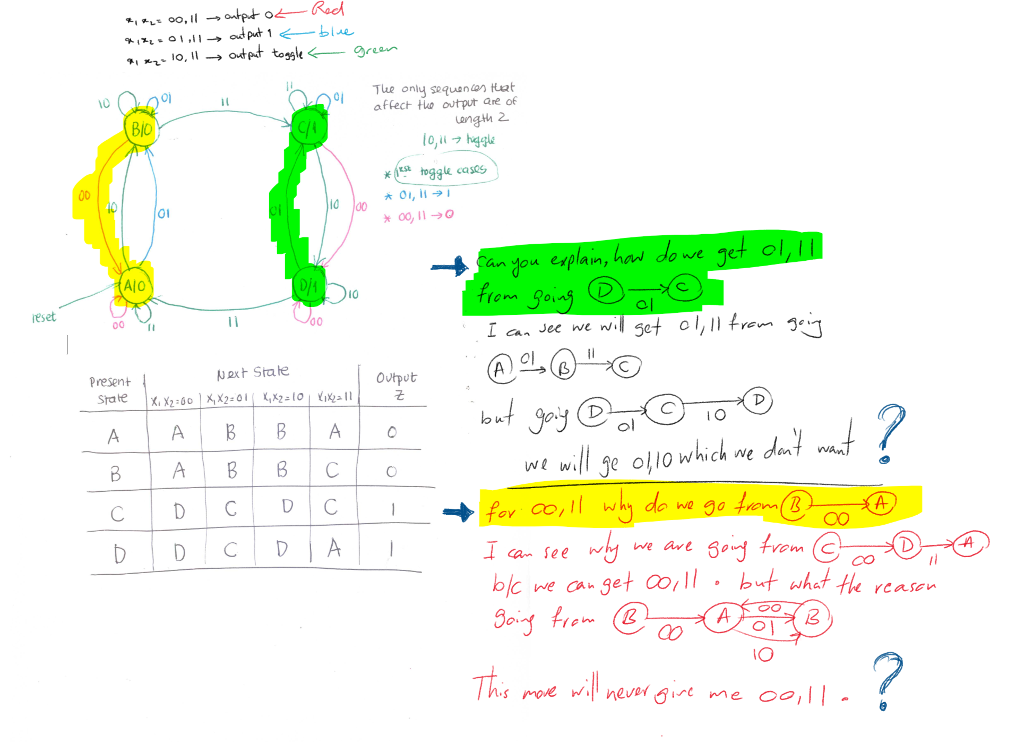 x₁x₂ = 00,11 → output 0 ← Red
x₁x₂ = 01,11 → output 1 ← blue
x₁x₂ = 10,11 → output toggle ← green
The only sequences that
affect the output are of
length 2
10,11 → toggle
* toggle cases
* 01,11 → 1
* 00,11 → 0
10 01 11 11 01
B/0 C/1
00 10 01 01 10 00
A/0 D/1 10
reset 00 11 11 00
can you explain, how do we get 01,11
from going D → C
01
I can see we will get 01,11 from going
A 01 → B 11 → C
but going D → C → D
01 10
we will ge 01,10 which we don't want ?
for 00,11 why do we go from B → A
00
I can see why we are going from C → D → A
00 11
b/c we can get 00,11 . but what the reason
going from B → A 00 B
00 01
10
This move will never give me 00,11 . ?
Present State Next State Output Z
X₁X₂=00 X₁X₂=01 X₁X₂=10 X₁X₂=11
A A B B A 0
B A B B C 0
C D C D C 1
D D C D A 1